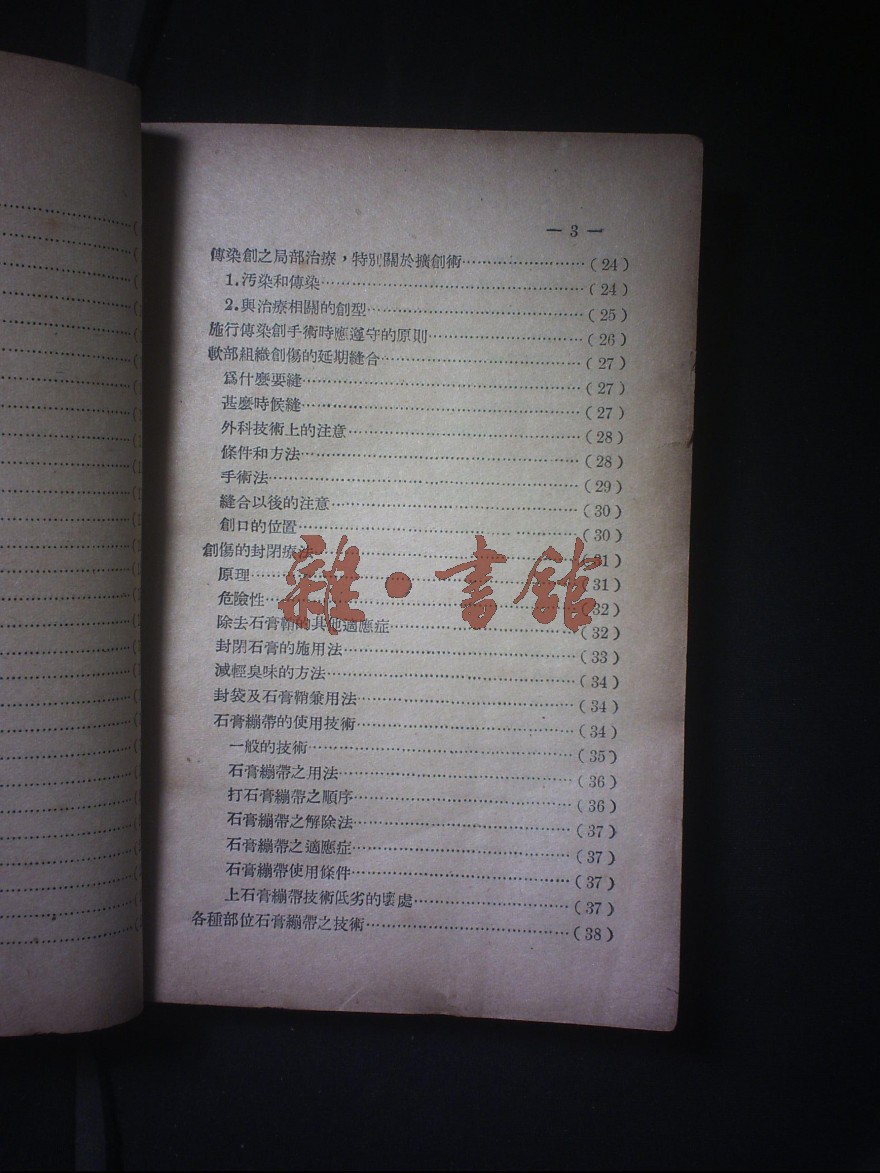 — 3 —
傳染創之局部治療，特別關於擴創術……………………(24)
1.汚染和傳染……………………(24)
2.與治療相關的創型……………………(25)
施行傳染創手術時應遵守的原則……………………(26)
軟部組織創傷的延期縫合……………………(27)
爲什麼要縫……………………(27)
甚麼時候縫……………………(27)
外科技術上的注意……………………(28)
條件和方法……………………(28)
手術法……………………(29)
縫合以後的注意……………………(30)
創口的位置……………………(30)
創傷的封閉療法……………………(31)
原理……………………(31)
危險性……………………(32)
除去石膏鞘的其他適應症……………………(32)
封閉石膏的施用法……………………(33)
減輕臭味的方法……………………(34)
封袋及石膏鞘兼用法……………………(34)
石膏繃帶的使用技術……………………(34)
一般的技術……………………(35)
石膏繃帶之用法……………………(36)
打石膏繃帶之順序……………………(36)
石膏繃帶之解除法……………………(37)
石膏繃帶之適應症……………………(37)
石膏繃帶使用條件……………………(37)
上石膏繃帶技術低劣的壞處……………………(37)
各種部位石膏繃帶之技術……………………(38)
雜·書館